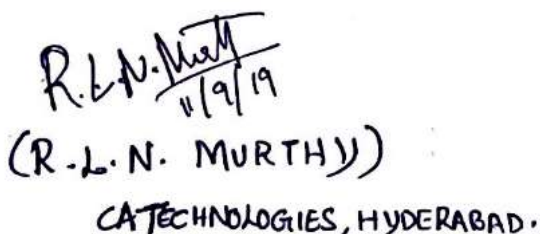 R.L.N. Murthy
11/9/19
(R.L.N. MURTHY)
CA TECHNOLOGIES, HYDERABAD.